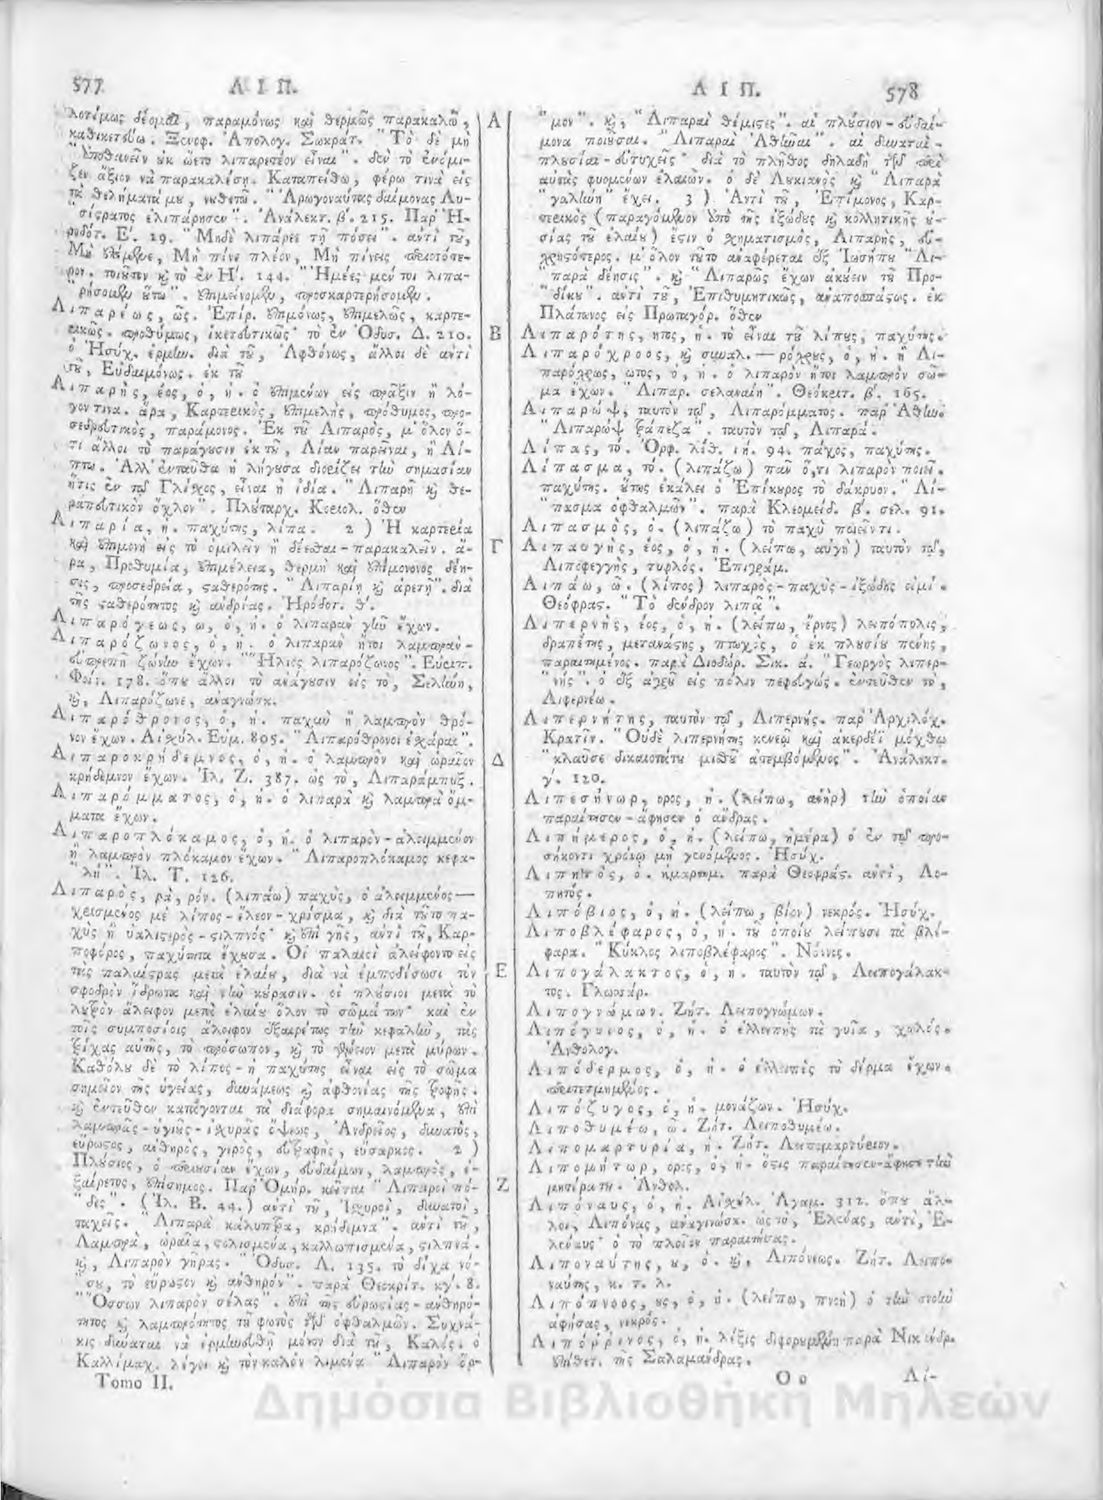 577 ΛΙΠ.
λοτίμως δέομαι, παραμόνως καὶ θερμῶς παρακαλῶ,
καθικετεύω. Ξενοφ. Ἀπολογ. Σωκράτ. "Τὸ δὲ μὴ
"ἀποθανεῖν οὐκ ᾤετο λιπαρητέον εἶναι". δὲν τὸ ἐνόμι-
ζεν ἄξιον νὰ παρακαλέσῃ. Καταπείθω, φέρω τινὰ εἰς
τὰ θελήματά μου, νουθετῶ. "Ἀρωγοναύτας δαίμονας Λυ-
"σίστρατος ἐλιπάρησεν". Ἀνάλεκτ. β΄. 215. Παρ' Ἡ-
ροδότ. Ε΄. 19. "Μηδὲ λιπάρει τῇ πόσει". ἀντὶ τοῦ,
Μὴ ἐπίμενε, Μὴ πίνε πλέον, Μὴ πίνεις περισσότε-
ρον. τοιοῦτον καὶ τὸ ἐν Η΄. 144. "Ἡμέες μέντοι λιπα-
"ρήσομεν οὕτω". ἐπιμείνομεν, προσκαρτερήσομεν.
Λιπαρέως, ῶς. Ἐπίρ. ἐπιμόνως, ἐπιμελῶς, καρτε-
ρικῶς. προθύμως, ἱκετευτικῶς· τὸ ἐν Ὀδυσ. Δ. 210.
ὁ Ἡσύχ. ἑρμην. διὰ τοῦ, Ἀφθόνως, ἄλλοι δὲ ἀντὶ
τοῦ, Εὐδαιμόνως. ἐκ τοῦ
Λιπαρὴς, έος, ὁ, ἡ. ὁ ἐπιμένων εἰς πρᾶξιν ἢ λό-
γον τινα. ἄρα, Καρτερικὸς, ἐπιμελὴς, πρόθυμος, προ-
σεδρευτικὸς, παράμονος. Ἐκ τοῦ Λιπαρὸς, μ' ὅλον ὅ-
τι ἄλλοι τὸ παράγουσιν ἐκ τοῦ, Λίαν παρεῖναι, ἢ Λί-
πτω. Ἀλλ' ἐνταῦθα ἡ λήγουσα διορίζει τὴν σημασίαν
ἥτις ἐν τῷ Γλίσχος, εἶναι ἡ ἰδία. "Λιπαρῆ καὶ θε-
ραπευτικὸν ὄχλον". Πλούταρχ. Κοριολ. ὅθεν
Λιπαρία, ἡ. παχύτης, λίπα. 2) Ἡ καρτερία
καὶ ἐπιμονὴ εἰς τὸ ὁμιλεῖν ἢ δέεσθαι-παρακαλεῖν. ἄ-
ρα, Προθυμία, ἐπιμέλεια, θερμὴ καὶ ἐπίμονονος δέη-
σις, προσεδρεία, σταθερότης. "Λιπαρίῃ καὶ ἀρετῇ". διὰ
τῆς σταθερότητος καὶ ἀνδρίας. Ἡρόδοτ. θ΄.
Λιπαρόγεως, ω, ὁ, ἡ. ὁ λιπαρὰν γῆν ἔχων.
Λιπαρόζωνος, ὁ, ἡ. ὁ λιπαρὰν ἤτοι λαμπρὰν-
εὐπρεπῆ ζώνην ἔχων. "Ἥλιος λιπαρόζωνος". Εὐριπ.
Φοίν. 178. ὅπου ἄλλοι τὸ ἀνάγουσιν εἰς τὸ, Σελήνη,
καὶ, Λιπαρόζωνε, ἀναγνώσκ.
Λιπαρόθρονος, ὁ, ἡ. παχὺν ἢ λαμπρὸν θρό-
νον ἔχων. Αἰσχύλ. Εὐμ. 805. "Λιπαρόθρονοι ἐσχάραι".
Λιπαροκρήδεμνος, ὁ, ἡ. ὁ λαμπρὸν καὶ ὡραῖον
κρήδεμνον ἔχων. Ἰλ. Ζ. 387. ὡς τὸ, Λιπαράμπυξ.
Λιπαρόμματος, ὁ, ἡ. ὁ λιπαρὰ καὶ λαμπρὰ ὄμ-
ματα ἔχων.
Λιπαροπλόκαμος, ὁ, ἡ. ὁ λιπαρὸν-ἀλειμμένον
ἢ λαμπρὸν πλόκαμον ἔχων. "Λιπαροπλόκαμος κεφα-
"λή". Ἰλ. Τ. 126.
Λιπαρὸς, ρὰ, ρόν. (λιπάω) παχὺς, ὁ ἀλειμμένος—
χρισμένος μὲ λίπος-ἔλεον-χρίσμα, καὶ διὰ τοῦτο πα-
χὺς ἢ ὑαλιστερὸς-στιλπνός· καὶ ἐπὶ γῆς, ἀντὶ τοῦ, Καρ-
ποφόρος, παχύτητα ἔχουσα. Οἱ παλαιοὶ ἀλείφοντο εἰς
τὰς παλαίστρας μετὰ ἐλαίου, διὰ νὰ ἐμποδίσωσι τὸν
σφοδρὸν ἵδρωτα καὶ τὴν κούρασιν. οἱ πλούσιοι μετὰ τὸ
λουτρὸν ἄλειφον μετὰ ἐλαίου ὅλον τὸ σῶμά των· καὶ ἐν
τοῖς συμποσίοις ἄλειφον ἐξαιρέτως τὴν κεφαλὴν, τὰς
τρίχας αὐτῆς, τὸ πρόσωπον, καὶ τὸ γένειον μετὰ μύρων.
Καθόλου δὲ τὸ λίπος-ἡ παχύτης εἶναι εἰς τὸ σῶμα
σημεῖον τῆς ὑγείας, δυνάμεως καὶ ἀφθονίας τῆς τροφῆς.
καὶ ἐντεῦθεν κατάγονται τὰ διάφορα σημαινόμενα, ἐπὶ
λαμπρᾶς-ὑγιοῦς-ἰσχυρᾶς ὄψεως, Ἀνδρεῖος, δυνατὸς,
εὔρωστος, ἀνθηρὸς, γερὸς, εὐτραφὴς, εὔσαρκος. 2)
Πλούσιος, ὁ περιουσίαν ἔχων, εὐδαίμων, λαμπρὸς, ἐ-
ξαίρετος, ἐπίσημος. Παρ' Ὁμήρ. κεῖται "Λιπαροὶ πό-
"δες". (Ἰλ. Β. 44.) ἀντὶ τοῦ, Ἰσχυροὶ, δυνατοὶ,
ταχεῖς. "Λιπαρὰ καλύπτρα, κρήδεμνα". ἀντὶ τοῦ,
Λαμπρὰ, ὡραῖα, στολισμένα, καλλωπισμένα, στιλπνά.
καὶ, Λιπαρὸν γῆρας. "Ὀδυσ. Λ. 135. τὸ δίχα νό-
"σου, τὸ εὔρωστον καὶ ἀνθηρόν". παρὰ Θεοκρίτ. κγ΄. 8.
"Ὄσσων λιπαρὸν σέλας". ἐπὶ τῆς εὐρωστίας-ἀνθηρό-
τητος καὶ λαμπρότητος τοῦ φωτὸς τῶν ὀφθαλμῶν. Συχνά-
κις δύναται νὰ ἑρμηνευθῇ μόνον διὰ τοῦ, Καλός. ὁ
Καλλίμαχ. λέγει καὶ τὸν καλὸν λιμένα "Λιπαρὸν ὅρ-
Tomo II.
Α
Β
Γ
Δ
Ε
Ζ
ΛΙΠ. 578
"μον". καὶ, "Λιπαραὶ θέμιστες". αἱ πλούσιον-εὐδαί-
μονα ποιοῦσαι. "Λιπαραὶ Ἀθῆναι". αἱ δυναταὶ-
πλούσιαι-εὐτυχεῖς· διὰ τὸ πλῆθος δηλαδὴ τῶν περὶ
αὐτὰς φυομένων ἐλαιῶν. ὁ δὲ Λουκιανὸς καὶ "Λιπαρὰ
"γαλήνη" ἔχει. 3) Ἀντὶ τοῦ, Ἐπίμονος, Καρ-
τερικὸς (παραγόμενον ἀπὸ τῆς ἰξώδους καὶ κολλητικῆς οὐ-
σίας τοῦ ἐλαίου) ἔστιν ὁ σχηματισμὸς, Λιπαρὴς, εὐ-
χρηστότερος. μ' ὅλον τοῦτο ἀναφέρεται ἐξ Ἰωσήπου "Λι-
"παρὰ δέησις". καὶ "Λιπαρῶς ἔχων ἀκούειν τοῦ Προ-
"δίκου". ἀντὶ τοῦ, Ἐπιθυμητικῶς, ἀναποσπάστως. ἐκ
Πλάτωνος εἰς Πρωταγόρ. ὅθεν
Λιπαρότης, ητος, ἡ. τὸ εἶναι τοῦ λίπους, παχύτης.
Λιπαρόχροος, καὶ συναλ.—ρόχρους, ὁ, ἡ. ἢ Λι-
παρόχρως, ωτος, ὁ, ἡ. ὁ λιπαρὸν ἤτοι λαμπρὸν σῶ-
μα ἔχων. "Λιπαρ. σελαναία". Θεόκριτ. β΄. 165.
Λιπαρώψ, ταυτὸν τῷ, Λιπαρόμματος. παρ' Ἀθην.
"Λιπαρὼψ τράπεζα". ταυτὸν τῷ, Λιπαρά.
Λίπας, τό. Ὀρφ. λίθ. ιη. 94. πάχος, παχύτης.
Λίπασμα, τό. (λιπάζω) πᾶν ὅ,τι λιπαρὸν ποιεῖ.
παχύτης. οὕτως ἐκάλει ὁ Ἐπίκουρος τὸ δάκρυον. "Λί-
"πασμα ὀφθαλμῶν". παρὰ Κλεομείδ. β΄. σελ. 91.
Λιπασμὸς, ὁ. (λιπάζω) τὸ παχὺ ποιεῖν τι.
Λιπαυγὴς, έος, ὁ, ἡ. (λείπω, αὐγὴ) ταυτὸν τῷ,
Λιποφεγγὴς, τυφλός. Ἐπιγράμ.
Λιπάω, ῶ. (λίπος) λιπαρὸς-παχὺς-ἰξώδης εἰμί.
Θεόφραστ. "Τὸ δένδρον λιπᾷ".
Λιπερνὴς, έος, ὁ, ἡ. (λείπω, ἔρνος) λειπόπολις,
δραπέτης, μετανάστης, πτωχὸς, ὁ ἐκ πλουσίου πένης,
παραιτημένος. παρὰ Διοδώρ. Σικ. ά. "Γεωργὸς λιπερ-
"νής". ὁ ἐξ ἀγροῦ εἰς πόλιν πεφευγώς. ἐντεῦθεν τὸ,
Λιφερνέω.
Λιπερνήτης, ταυτὸν τῷ, Λιπερνής. παρ' Ἀρχιλόχ.
Κρατῖν. "Οὐδὲ λιπερνήτης κενεῷ καὶ ἀκερδέϊ μόχθῳ
"κλαῦσε δικαιοτάτου μισθοῦ ἀτεμβόμενος". Ἀνάλεκτ.
γ΄. 120.
Λιπεσήνωρ, ορος, ἡ. (λείπω, ἀνὴρ) τὴν ὁποίαν
παραίτησεν-ἄφησεν ὁ ἄνδρας.
Λιπήμερος, ὁ, ἡ. (λείπω, ἡμέρα) ὁ ἐν τῷ προ-
σήκοντι χρόνῳ μὴ γενόμενος. Ἡσύχ.
Λιπητὸς, ὁ. ἡμαρτημ. παρὰ Θεοφράστ. ἀντὶ, Λο-
πητός.
Λιπόβιος, ὁ, ἡ. (λείπω, βίον) νεκρός. Ἡσύχ.
Λιποβλέφαρος, ὁ, ἡ. τοῦ ὁποίου λείπουσι τὰ βλέ-
φαρα. "Κύκλος λιποβλέφαρος". Νόννος.
Λιπογάλακτος, ὁ, ἡ. ταυτὸν τῷ, Λειπογάλακ-
τος. Γλωσσάρ.
Λιπογνώμων. Ζήτ. Λειπογνώμων.
Λιπόγυιος, ὁ, ἡ. ὁ ἐλλιπὴς τὰ γυῖα, χωλός.
Ἀνθολογ.
Λιπόδερμος, ὁ, ἡ. ὁ ἐλλιπὲς τὸ δέρμα ἔχων.
περιτετμημένος.
Λιπόζυγος, ὁ, ἡ. μονάζων. Ἡσύχ.
Λιποθυμέω, ῶ. Ζήτ. Λειποθυμέω.
Λιπομαρτυρία, ἡ. Ζήτ. Λειπομαρτύριον.
Λιπομήτωρ, ορος, ὁ, ἡ. ὅστις παραίτησεν-ἄφησε τὴν
μητέρα του. Ἀνθολ.
Λιπόναυς, ὁ, ἡ. Αἰσχύλ. Ἀγαμ. 312. ὅπου ἄλ-
λοι, Λιπόνας, ἀναγινώσκ. ὡς τὸ, Ἑλένας, ἀντὶ, Ἑ-
λέναυς· ὁ τὸ πλοῖον παραιτήσας.
Λιποναύτης, ου, ὁ. καὶ, Λιπόνεως. Ζήτ. Λειπο-
ναύτης, κ. τ. λ.
Λιπόπνοος, ους, ὁ, ἡ. (λείπω, πνοὴ) ὁ τὴν πνοὴν
ἀφήσας, νεκρός.
Λιπόῤῥινος, ὁ, ἡ. λέξις διφορουμένη παρὰ Νικάνδρ.
ἐπίθετ. τῆς Σαλαμάνδρας.
O o Λι-
Δημόσια Βιβλιοθήκη Μηλεών